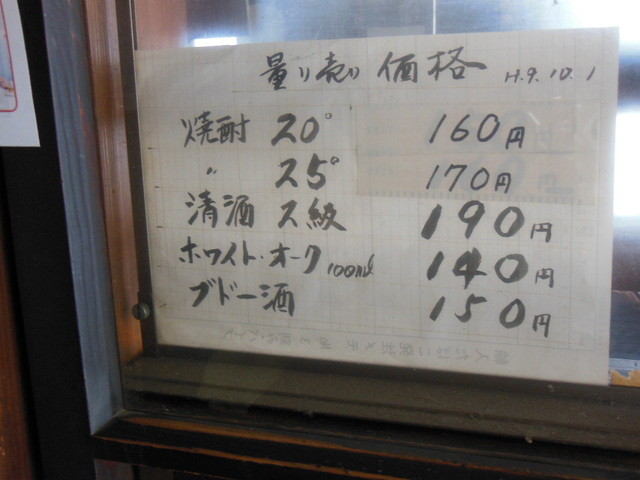 量り売り 価格 H.9.10.1
焼酎 20° 160円
〃 25° 170円
清酒 2級 190円
ホワイト・オーク 100ml 140円
ブドー酒 150円